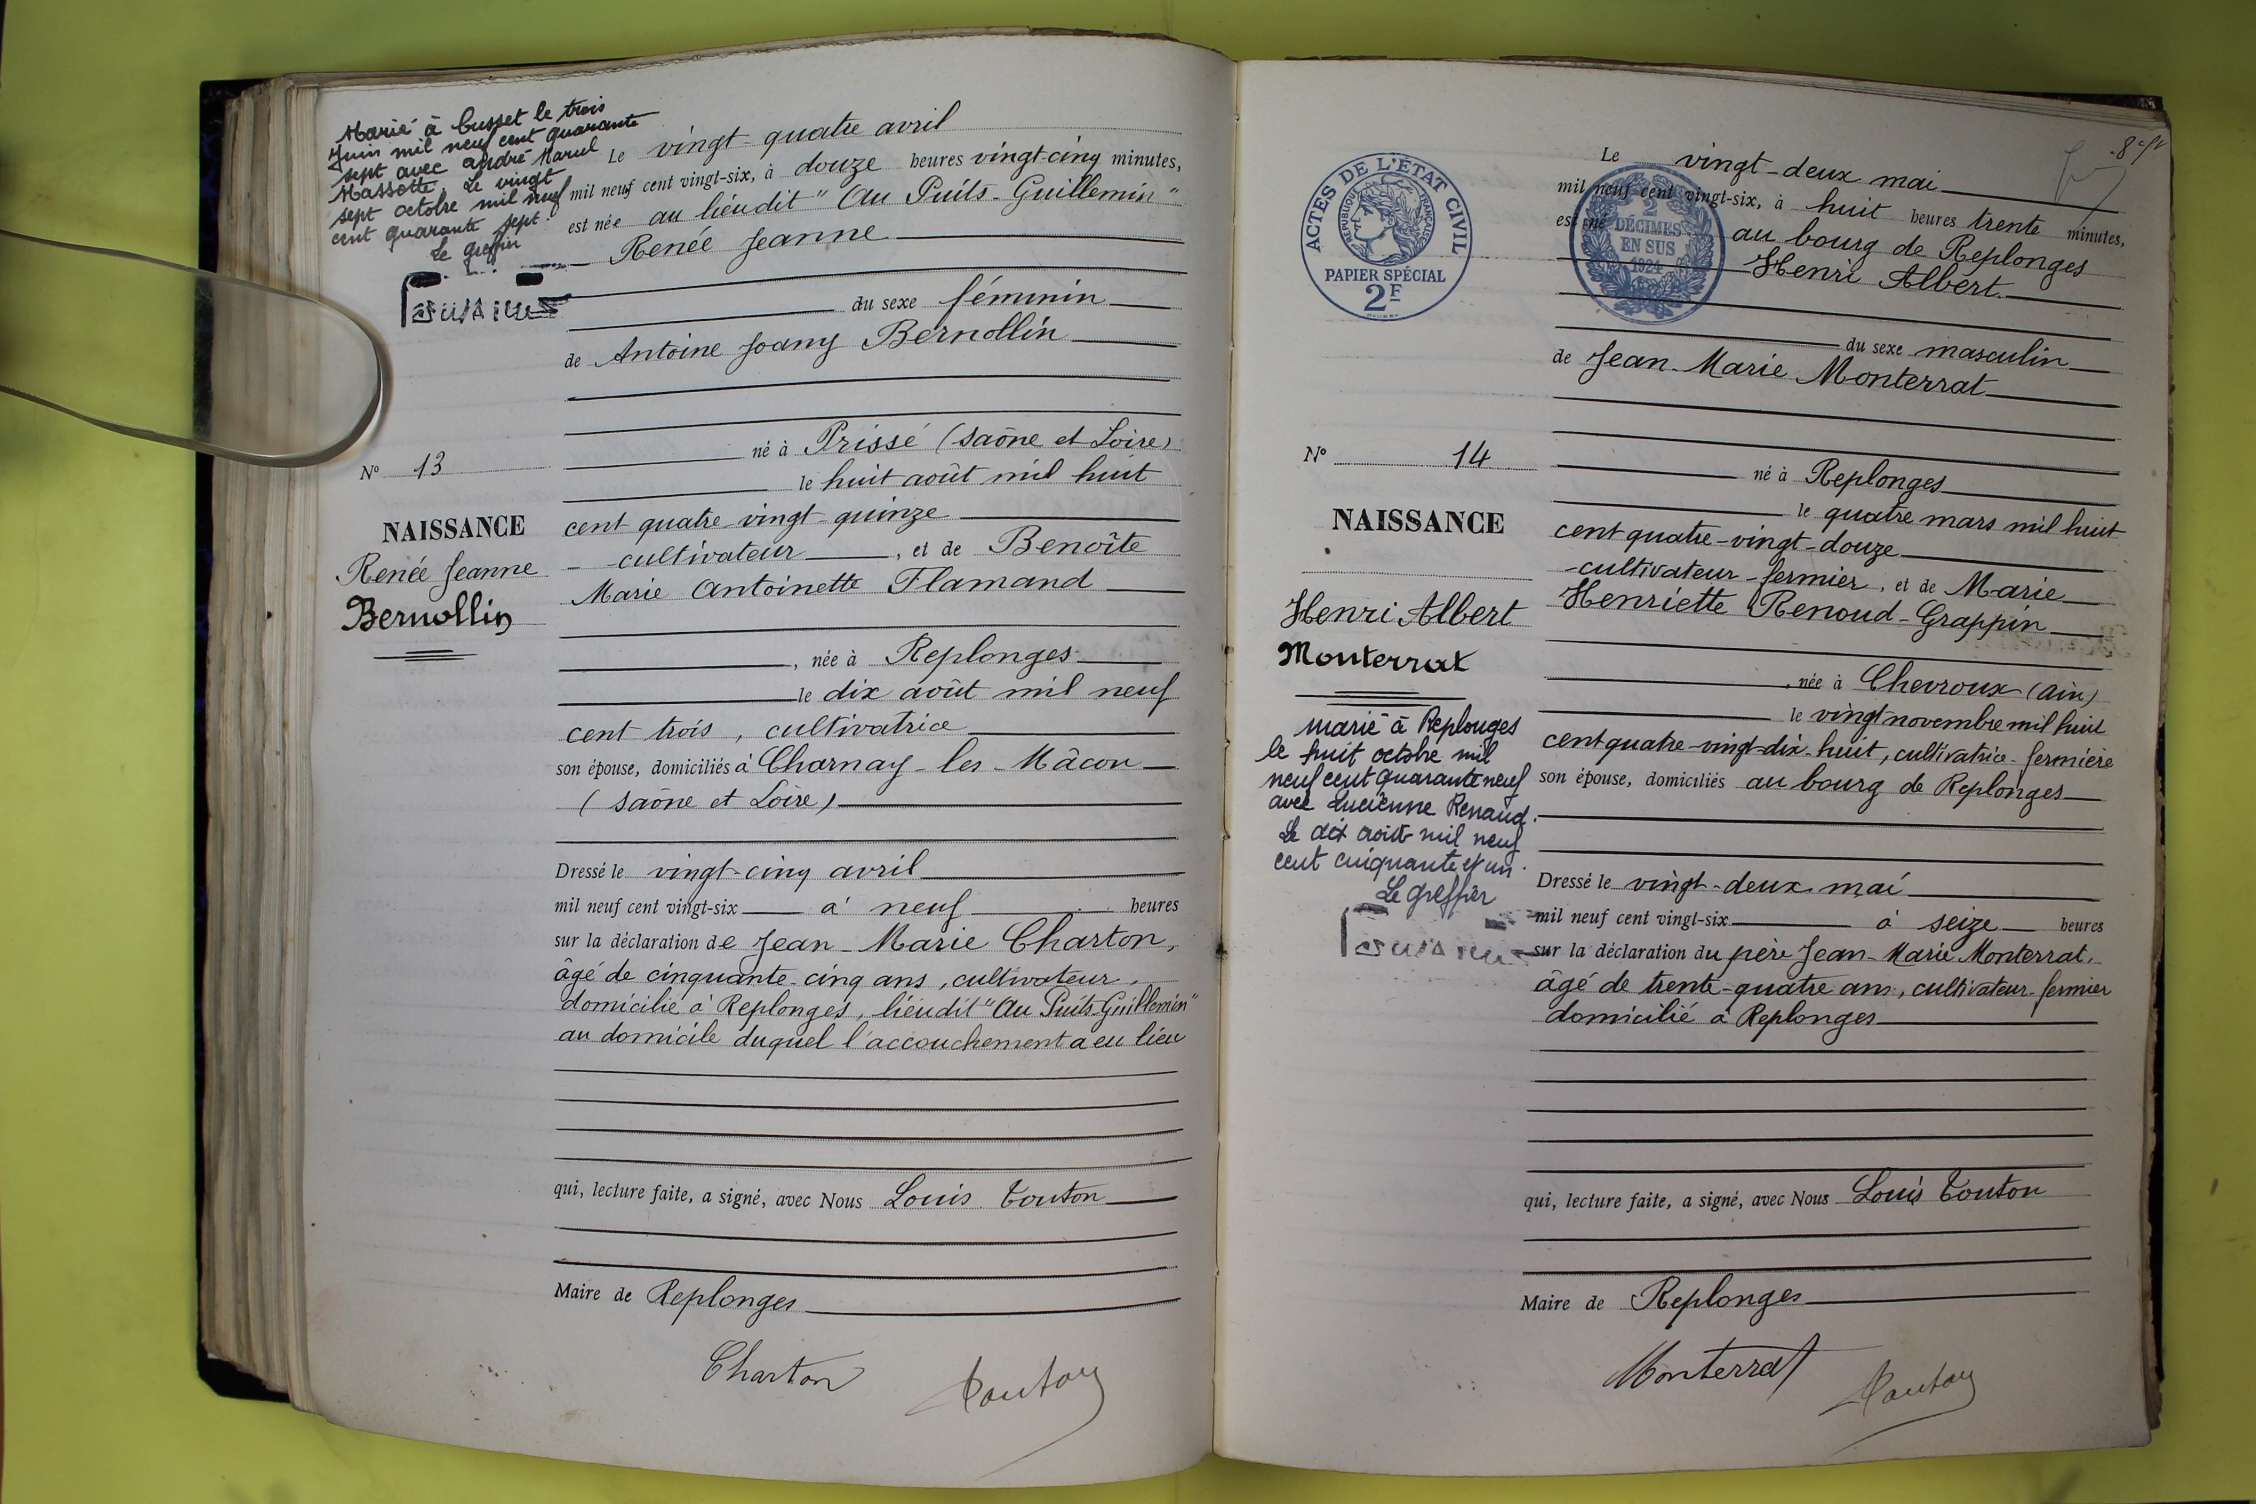 Marié à Cusset le trois
Juin mil neuf cent quarante
sept avec André Marcel
Massotte. Le vingt
sept octobre mil neuf
cent quarante sept.
Le greffier
Le vingt-quatre avril
mil neuf cent vingt-six, à douze heures vingt-cinq minutes,
est née au lieudit "Au Puits-Guillemin"
Renée Jeanne
du sexe féminin
de Antoine Joany Bernollin
né à Prissé (Saône et Loire)
le huit août mil huit
cent quatre-vingt-quinze
cultivateur, et de Benoîte
Marie Antoinette Flamand
, née à Replonges
le dix août mil neuf
cent trois, cultivatrice
son épouse, domiciliés à Charnay-les-Mâcon
(Saône et Loire)
Dressé le vingt-cinq avril
mil neuf cent vingt-six à neuf heures
sur la déclaration de Jean-Marie Charton,
âgé de cinquante-cinq ans, cultivateur,
domicilié à Replonges, lieudit "Au Puits-Guillemin"
au domicile duquel l'accouchement a eu lieu
qui, lecture faite, a signé, avec Nous Louis Touton
Maire de Replonges
Charton Touton
No 13
NAISSANCE
Renée Jeanne
Bernollin
ACTES DE L'ÉTAT CIVIL
RÉPUBLIQUE FRANÇAISE
PAPIER SPÉCIAL
2F
2
DÉCIMES
EN SUS
1924
Le vingt-deux mai
mil neuf cent vingt-six, à huit heures trente minutes,
est né au bourg de Replonges
Henri Albert
du sexe masculin
de Jean-Marie Monterrat
né à Replonges
le quatre mars mil huit
cent quatre-vingt-douze
cultivateur-fermier, et de Marie
Henriette Renoud-Grappin
, née à Chevroux (Ain)
le vingt novembre mil huit
cent quatre-vingt-dix-huit, cultivatrice-fermière
son épouse, domiciliés au bourg de Replonges
Dressé le vingt-deux mai
mil neuf cent vingt-six à seize heures
sur la déclaration du père Jean-Marie Monterrat,
âgé de trente-quatre ans, cultivateur-fermier
domicilié à Replonges
qui, lecture faite, a signé, avec Nous Louis Touton
Maire de Replonges
Monterrat Touton
No 14
NAISSANCE
Henri Albert
Monterrat
marié à Replonges
le huit octobre mil
neuf cent quarante neuf
avec Lucienne Renaud.
Le dix août mil neuf
cent cinquante et un.
Le greffier